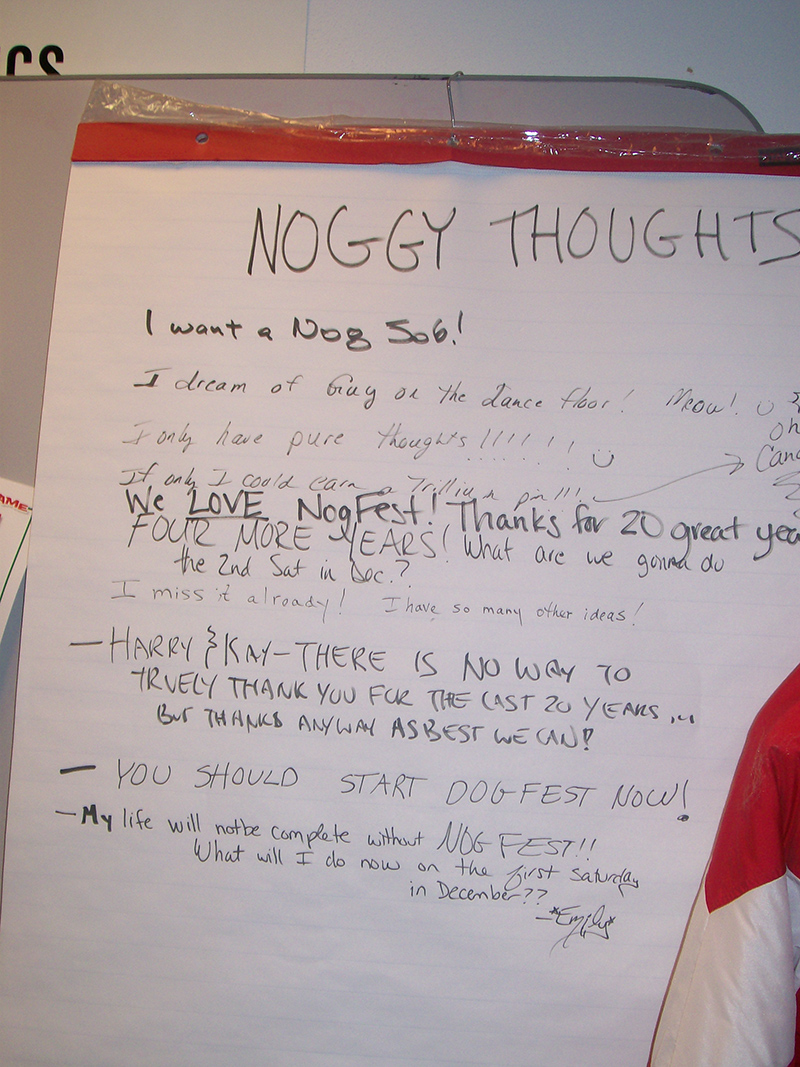 ICS
NOGGY THOUGHTS
I want a Nog Job!
I dream of Guy on the dance floor! Meow! ☺
Oh
I only have pure thoughts!!!!!!! ☺
Canc
If only I could earn a Trillium pin!!!
We LOVE NogFest! Thanks for 20 great yea
FOUR MORE YEARS! What are we gonna do
the 2nd Sat in Dec.?
I miss it already! I have so many other ideas!
AME
— HARRY & KAY - THERE IS NO WAY TO
TRUELY THANK YOU FOR THE LAST 20 YEARS...
BUT THANKS ANYWAY AS BEST WE CAN!
— YOU SHOULD START DOGFEST NOW!
- My life will not be complete without NOG FEST!!
What will I do now on the first Saturday
in December??
- *Emily*